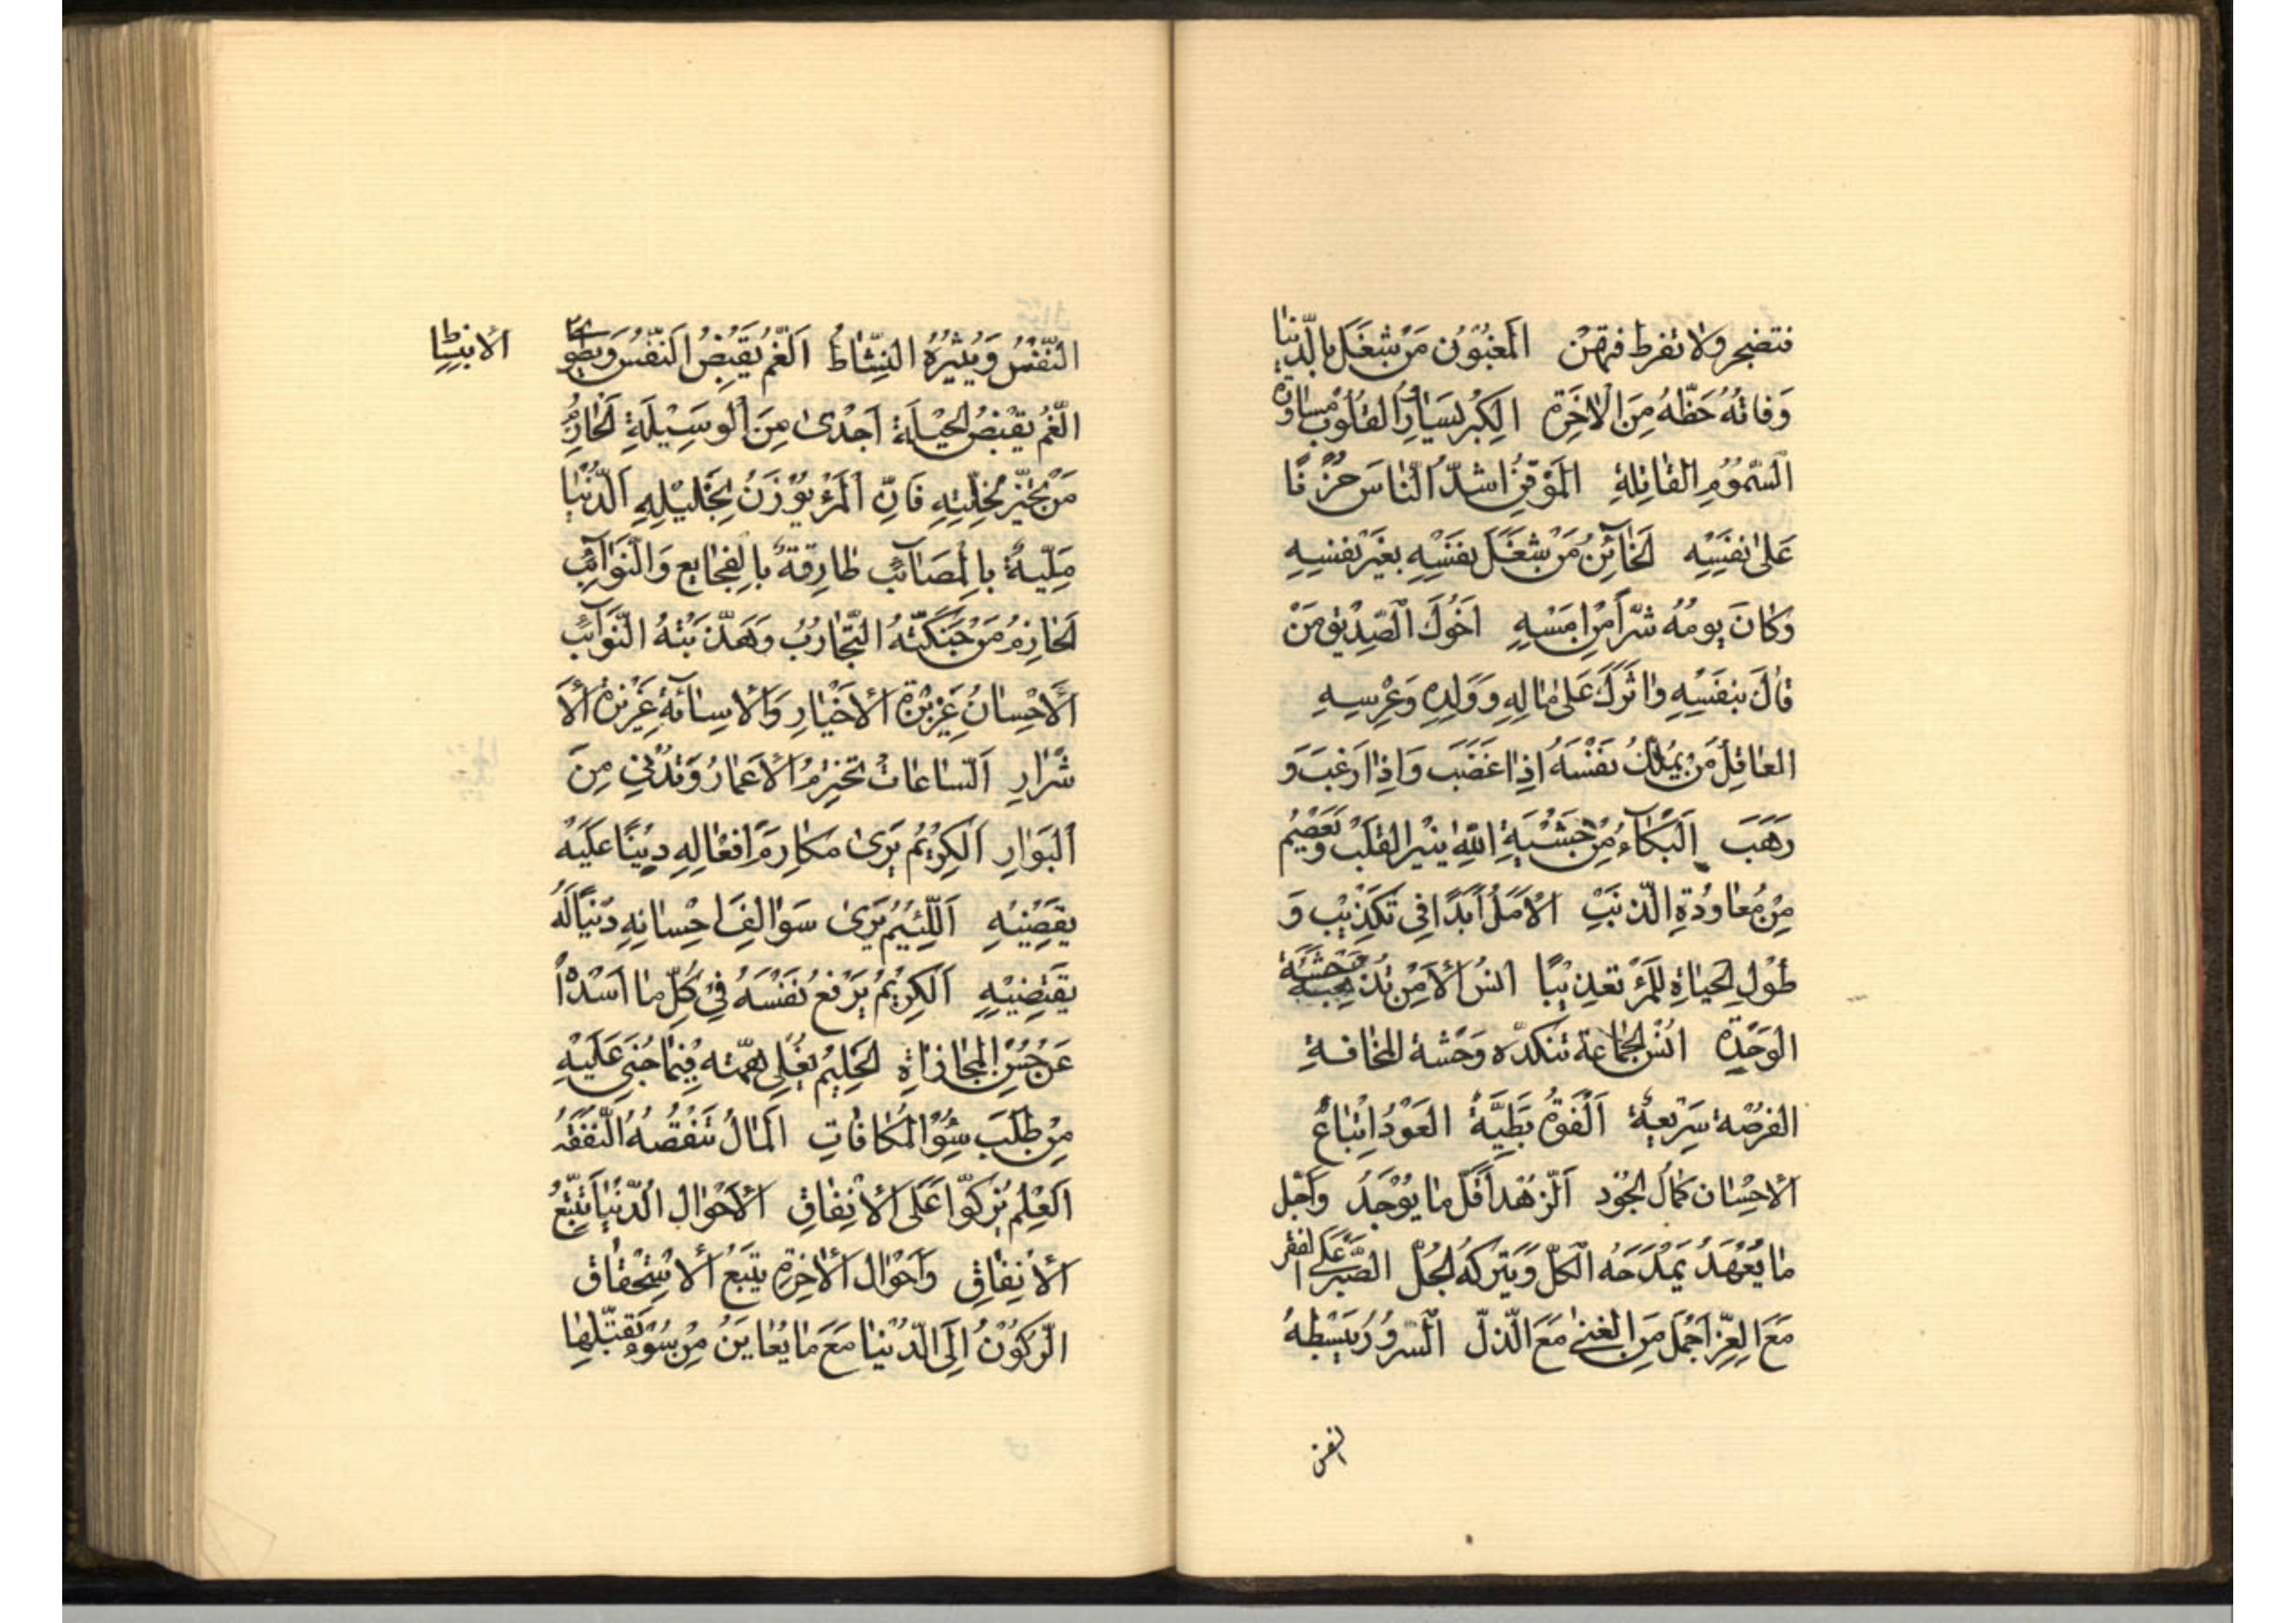 فتضجر ولا تفرط فتهن المغبون من شغل بالدنيا
وفاته حظه من الاخرة الكبر يساور القلوب مساورة
السموم القاتلة الموقن اشد الناس حزنا
على نفسه الخائن من شغل نفسه بغير نفسه
وكان يومه شرا من امسه اخوك الصديق من
قاك بنفسه واثرك على ماله وولده وعرسه
العاقل من يملك نفسه اذا غضب واذا رغب و
رهب البكاء من خشية الله ينير القلب ويعصم
من معاودة الذنب الامل ابدا في تكذيب و
طول الحياة للمرء تعذيبا انس الامن تذهبه وحشة
الوحدة انس الجماعة تنكده وحشة المخافة
الفرصة سريعة الفوة بطية العود اتباع
الاحسان كمال الجود الزهد اقل ما يوجد واجل
ما يعهد يمدحه الكل ويتركه الجل الصبر على الفقر
مع العز اجمل من الغنى مع الذل السرور يبسط
النفس
النفس ويثيره النشاط الغم يقبض النفس ويطوي
الانبساط
الغم يقبض الحيلة اجدى من الوسيلة الحازم
من تخير لخلته فان المرء يوزن بخليله الدنيا
مليئة بالمصائب طارقة بالفجايع والنوائب
الحازم من حنكته التجارب وهذبته النوائب
الاحسان غريزة الاخيار والاسائة غريزة الا
شرار الساعات تخترم الاعمار وتدني من
البوار الكريم يرى مكارم افعاله دينا عليه
يقضيه اللئيم يرى سوالف احسانه دينا له
يقتضيه الكريم يرفع نفسه في كل ما اسداه
عن حسن المجازاة الحليم يعلي همته فيما جني عليه
من طلب سوء المكافات المال تنقصه النفقة
العلم يزكوا على الانفاق الاحوال الدنيا تتبع
الانفاق واحوال الاخرة يتبع الاستحقاق
الركون الى الدنيا مع ما يعاين من سوء تقبلها